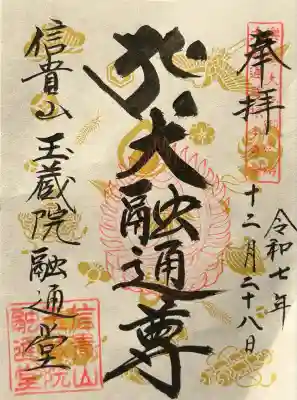 奉拝
令和七年
十二月二十八日
大融通尊
信貴山 玉蔵院 融通堂
信貴山
融通堂